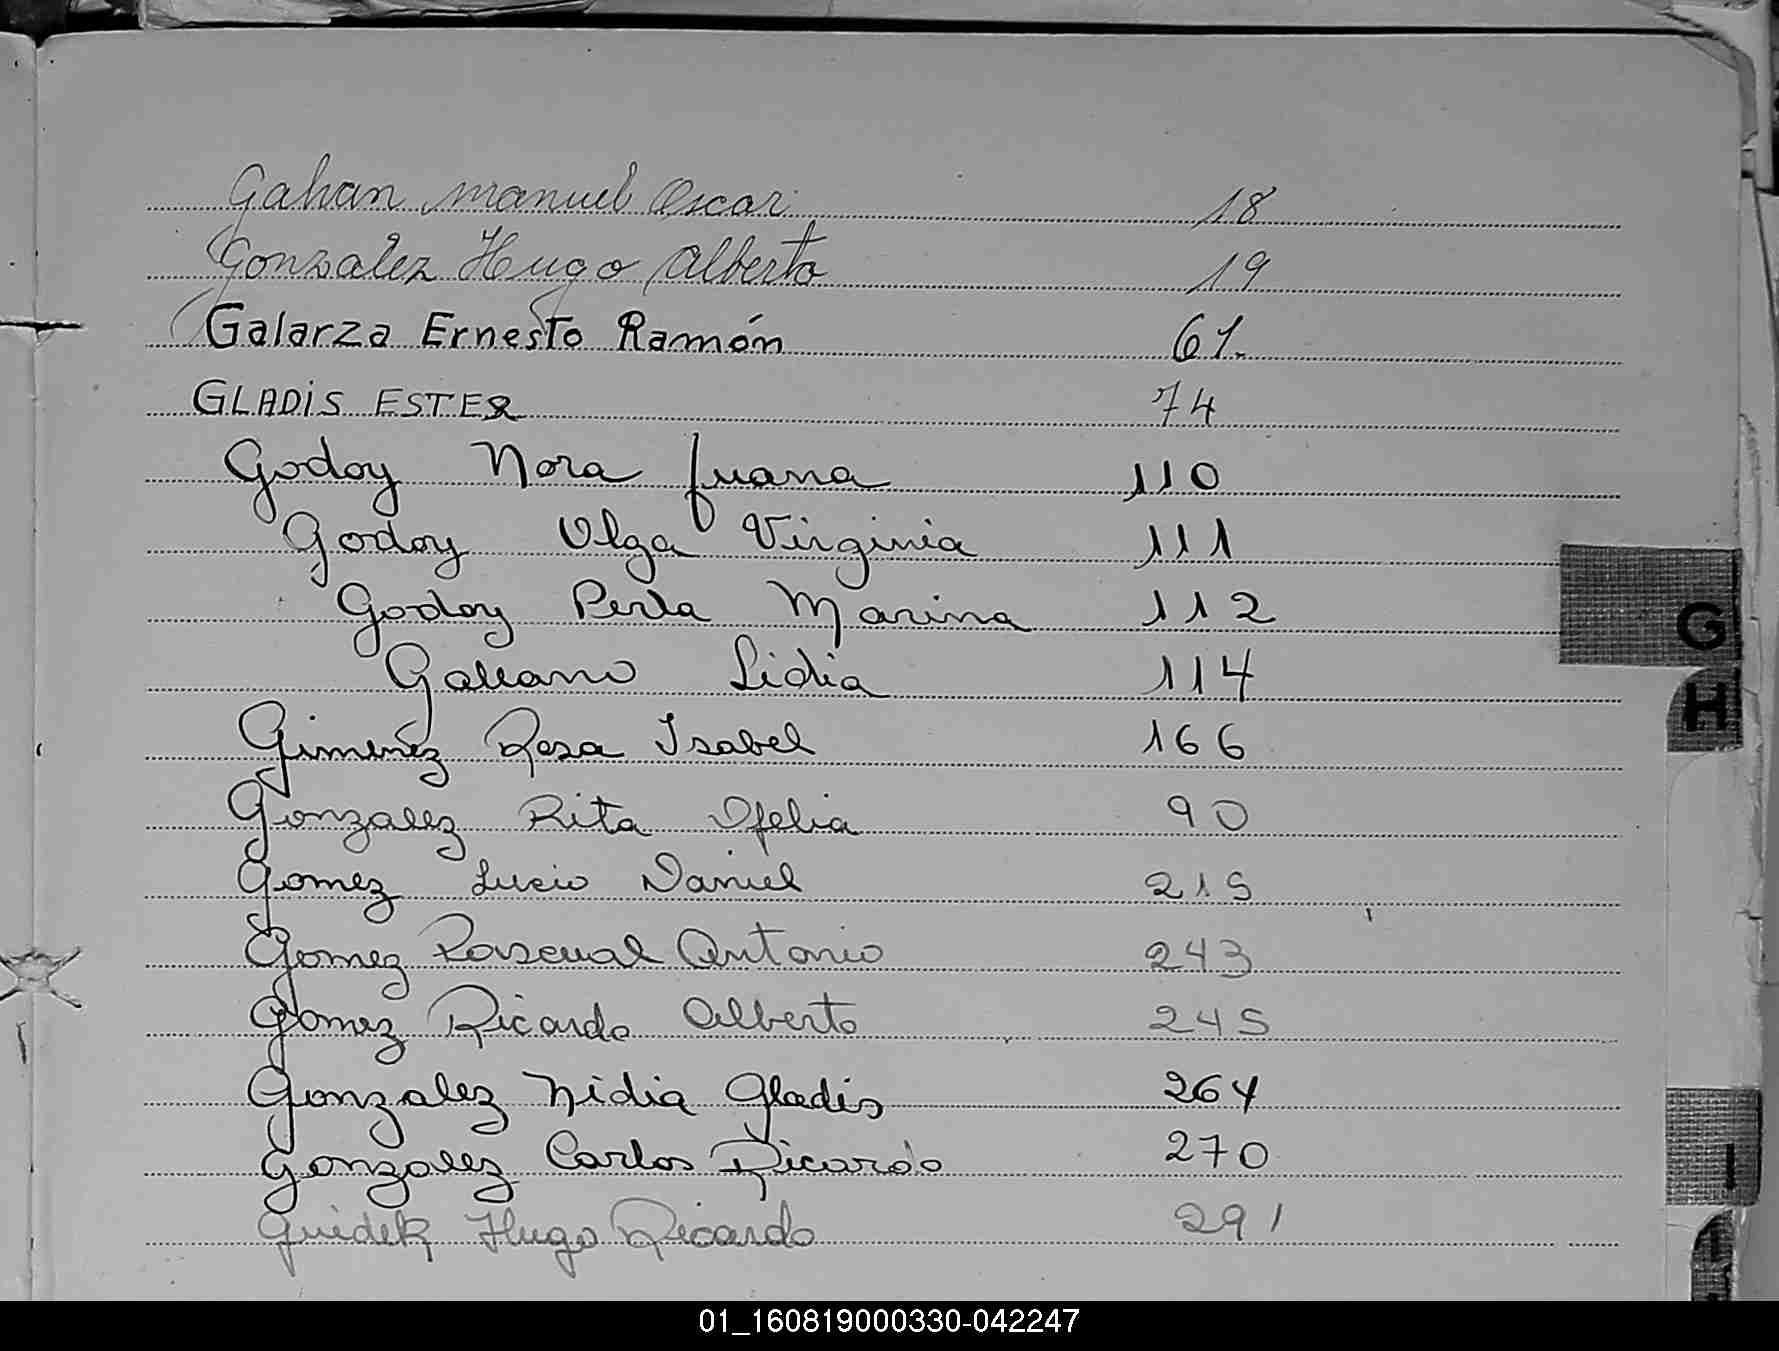 Gahan Manuel Oscar 18
Gonzalez Hugo Alberto 19
Galarza Ernesto Ramón 61.
GLADIS ESTER 74
Godoy Nora Juana 110
Godoy Olga Virginia 111
Godoy Perla Marina 112
G
Galeano Lidia 114
H
Giménez Rosa Isabel 166
Gonzalez Rita Ofelia 90
Gomez Lucio Daniel 215
Gomez Pascual Antonio 243
Gomez Ricardo Alberto 245
Gonzalez Nidia Gladis 264
Gonzalez Carlos Ricardo 270
I
Guidek Hugo Ricardo 291
01_160819000330-042247